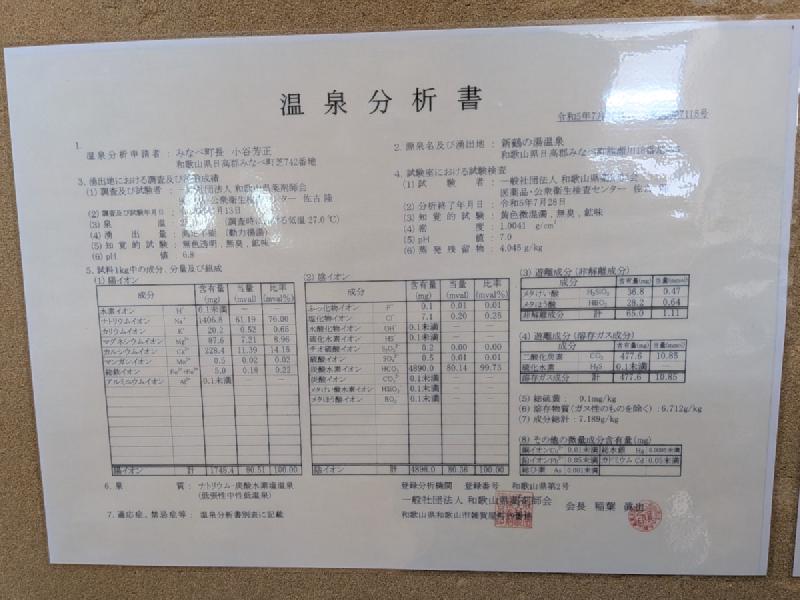 温泉分析書
令和5年7月
7118号
1.
温泉分析申請者：みなべ町長 小谷芳正
和歌山県日高郡みなべ町芝742番地
2. 源泉名及び湧出地：新鶴の湯温泉
和歌山県日高郡みなべ町
3. 湧出地における調査及び
(1) 調査及び試験者：一般社団法人 和歌山県薬剤師会
公衆衛生検査センター 佐古 隆
(2) 調査及び試験年月日
月13日
(3) 泉 温
(調査時における気温 27.0℃)
(4) 湧 出 量
測定不能 (動力揚湯)
(5) 知覚的試験：無色透明，無臭，鉱味
(6) pH値：6.8
4. 試験室における試験検査
(1) 試 験 者：一般社団法人 和歌山県
医薬品・公衆衛生検査センター
(2) 分析終了年月日：令和5年7月28日
(3) 知覚的試験：黄色微混濁，無臭，鉱味
(4) 密 度：1.0041 g/cm³
(5) pH 値：7.0
(6) 蒸発残留物：4.045 g/kg
5. 試料1kg中の成分、分量及び組成
(1) 陽イオン
成分 含有量(mg) 当量(mval) 比率(mval%)
水素イオン H⁺ 0.1未満 — —
ナトリウムイオン Na⁺ 1406.8 61.19 76.00
カリウムイオン K⁺ 20.2 0.52 0.65
マグネシウムイオン Mg²⁺ 87.6 7.21 8.96
カルシウムイオン Ca²⁺ 228.4 11.39 14.15
マンガンイオン Mn²⁺ 0.5 0.02 0.02
総鉄イオン Fe²⁺+Fe³⁺ 5.0 0.18 0.22
アルミニウムイオン Al³⁺ 0.1未満 — —
陽イオン 計 1748.4 80.51 100.00
(2) 陰イオン
成分 含有量(mg) 当量(mval) 比率(mval%)
ふっ化物イオン F⁻ 0.1 0.01 0.01
塩化物イオン Cl⁻ 7.1 0.20 0.25
水酸化物イオン OH⁻ 0.1未満 — —
硫化水素イオン HS⁻ 0.1未満 — —
チオ硫酸イオン S₂O₃²⁻ 0.2 0.00 0.00
硫酸イオン SO₄²⁻ 0.5 0.01 0.01
炭酸水素イオン HCO₃⁻ 4890.0 80.14 99.73
炭酸イオン CO₃²⁻ 0.1未満 — —
メタけい酸水素イオン HSiO₃⁻ 0.1未満 — —
メタほう酸イオン BO₂⁻ 0.1未満 — —
陰イオン 計 4898.0 80.36 100.00
(3) 遊離成分 (非解離成分)
成分 含有量(mg) 当量(mmol)
メタけい酸 H₂SiO₃ 36.8 0.47
メタほう酸 HBO₂ 28.2 0.64
非解離成分 計 65.0 1.11
(4) 遊離成分 (溶存ガス成分)
成分 含有量(mg) 当量(mmol)
二酸化炭素 CO₂ 477.6 10.85
硫化水素 H₂S 0.1未満 —
溶存ガス成分 計 477.6 10.85
(5) 総硫黄：0.1mg/kg
(6) 溶存物質(ガス性のものを除く)：6.712g/kg
(7) 成分総計：7.189g/kg
(8) その他の微量成分含有量(mg)
銅イオンCu²⁺ 0.01未満 総水銀 Hg 0.0005未満
鉛イオンPb²⁺ 0.05未満 カドミウム Cd 0.05未満
総ひ素 As 0.001未満
6. 泉 質：ナトリウム-炭酸水素塩温泉
(低張性中性低温泉)
7. 適応症、禁忌症等：温泉分析書別表に記載
登録分析機関 登録番号 和歌山県第2号
一般社団法人 和歌山県薬剤師会 会長 稲葉 眞也
和歌山県和歌山市雑賀屋町